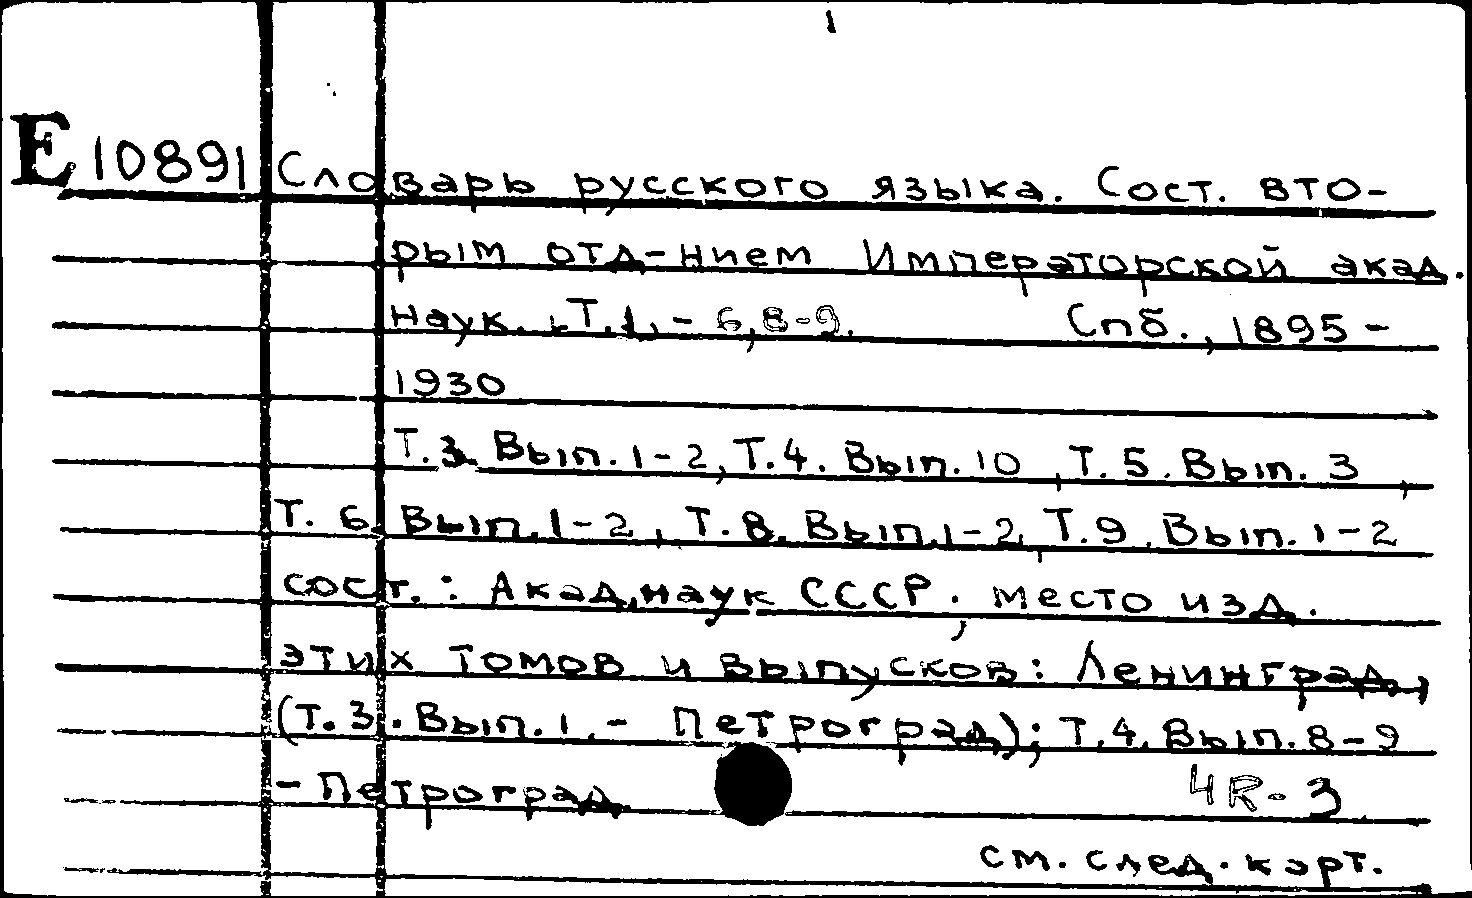 1
E 10891 Словарь русского языка. Сост. вто-
рым отд-нием Императорской акад.
наук. Т.1, - 6,8-9. Спб., 1895 -
1930
Т.3. Вып. 1-2, Т.4. Вып. 10, Т.5. Вып. 3,
Т. 6. Вып. 1-2, Т.8. Вып. 1-2, Т.9. Вып. 1-2
сост.: Акад. наук СССР; место изд.
этих томов и выпусков: Ленинград,
(Т.3. Вып. 1. - Петроград); Т.4. Вып. 8-9
- Петроград
4R-3
см. след. карт.